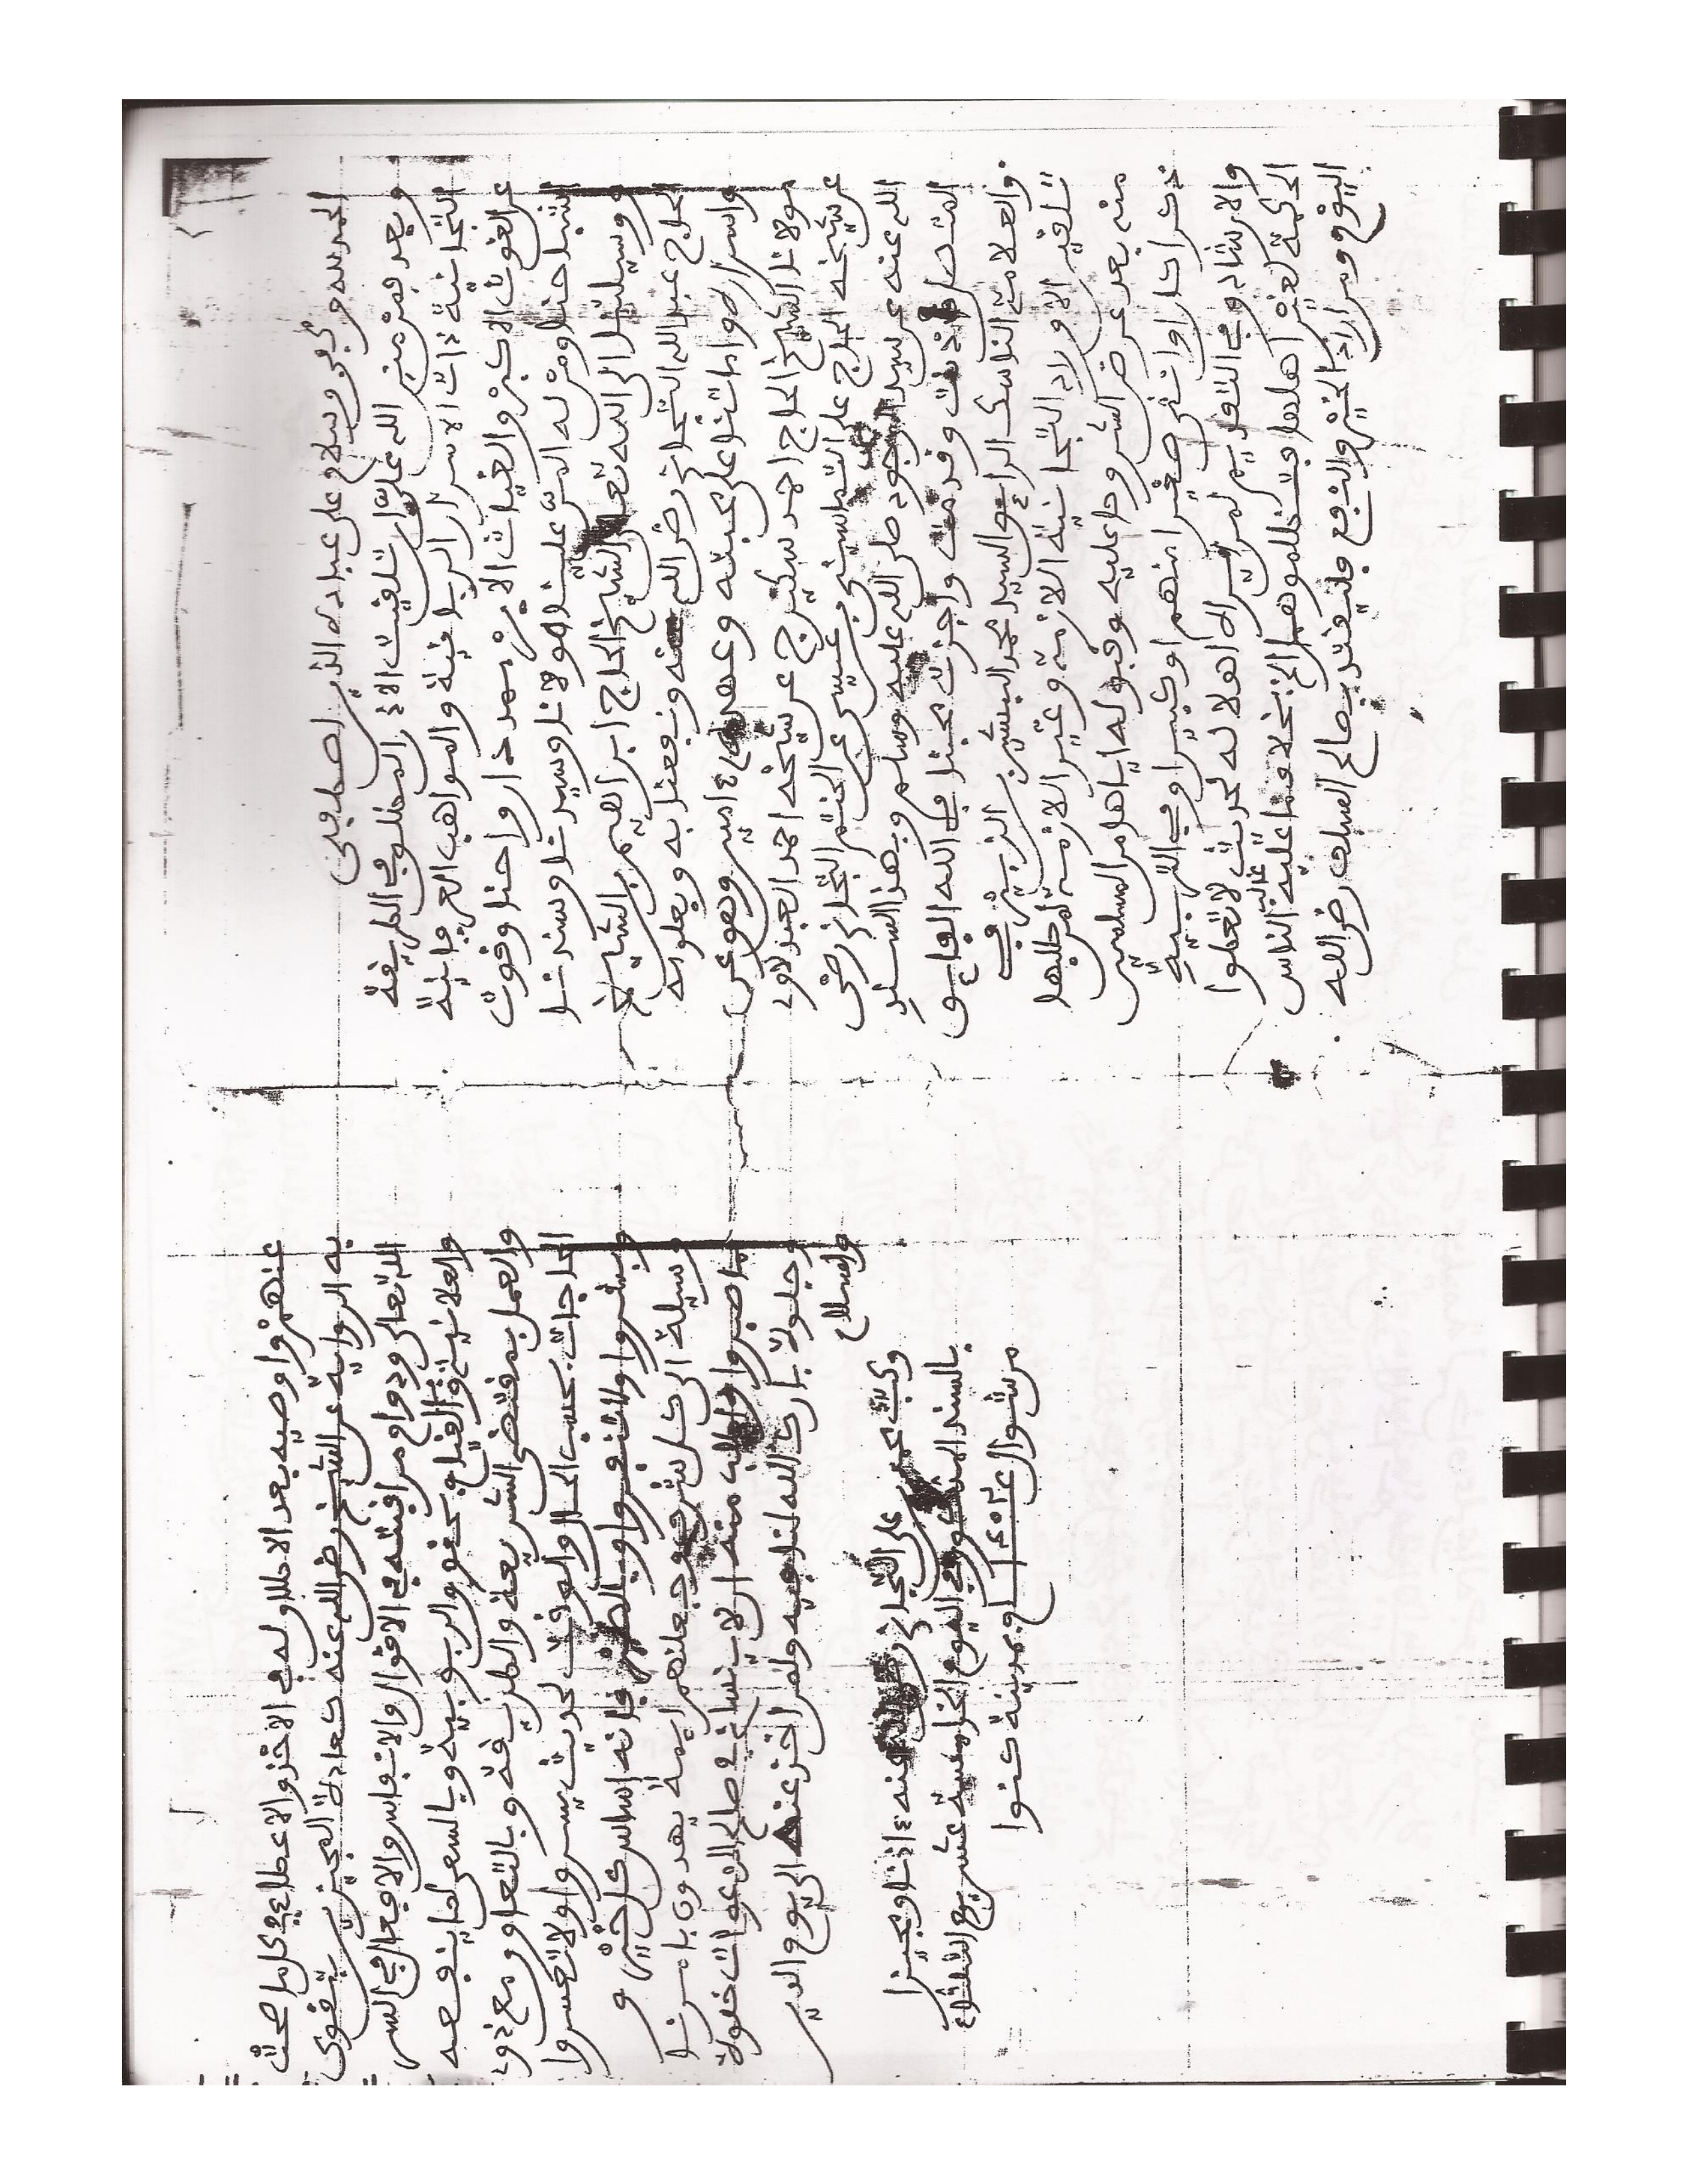 الحمد لله وكفى وسلام على عباده الذين اصطفى
وبعد فمن منن الله على أن تلفيت الاذن المطلق في الطريقة
التجانية ذات الاسرار الربانية والمواهب العرفانية
عن الغوث الاكبر والغياث الابر ممد ذاروا حنا وقوت
اشباحنا ومن له المن علينا مولانا وسيدنا وسندنا
ووسيلتنا الى الله تعالى الشيخ الحاج ابراهيم بن الشيخ
الحاج عبد الله التجاني رضي الله عنه ونفعنا به وبعلومه
واسراره واماتنا على محبته وعهده امين وهو عن
مولانا الشيخ الحاج احمد سكيرج عن شيخه احمد العبدلاوي
عن شيخه الحاج على التماسيني بن عيسى عن الختم التجاني رضي
الله عنه عن سيد الوجود صلى الله عليه وسلم وبهذا السند
المتصل اذنت وقدمت واجزت محبنا في الله الفايق
والعلامة الناسك الرايق السيد محمد البشير بن الزبير في
تلفين الاوراد التجانية الازمة وغير اللازمة لمن طلبها
منه بعد عرض الشروط عليه وقبوله اياها من المسلمين
ذكرا كان او انثى صغيرا منهم او كبيرا وفي التربية
والارشاد وفي التقديم لمن يراه اهلا له لحديث لا تعطوا
الحكمة لغير اهلها فتظلموها الخ بخلاف ما عليه غالب الناس
اليوم ومن اراد الخير والنفع فليقتد بصالح السلف رضي الله
عنهم واوصيه بعد الاطلاق له في الاخذ والاعطاء في كل ما صحت
به الرواية عن الشيخ رضي الله عنه كعادة المجيزين بتقوى
الله تعالى ودوام مراقبته في الاقوال والانفاس والافعال في السر
والعلانية والقيام بحقوق الربوبية وبالسعي لما ينفعه
والعمل بمقتضى الشريعة والطريقة وبالتعاون مع ذوي
الحاجات بحسب الحال والوقت لحديث يسروا ولا تعسروا
وبشروا ولا تنفروا وبالصبر فانه اساس كل خير و
وسيلة الى كل شرف وجعلنهم ايمة يهدون بامرنا
لما صبروا واطلب منه ان لا ينساني في صالح الدعوات خلوة
وجلوة بارك الله لنا فيه ولمن اخذ عنه الى يوم الدين
والسلام
وكتب محمد على التجاني رضي الله عنه اذنا ومجيزا
بالسند المذكور في اليوم الخامسة عشر يوم الثلثاء
من شوال عام بمدينة كنوا